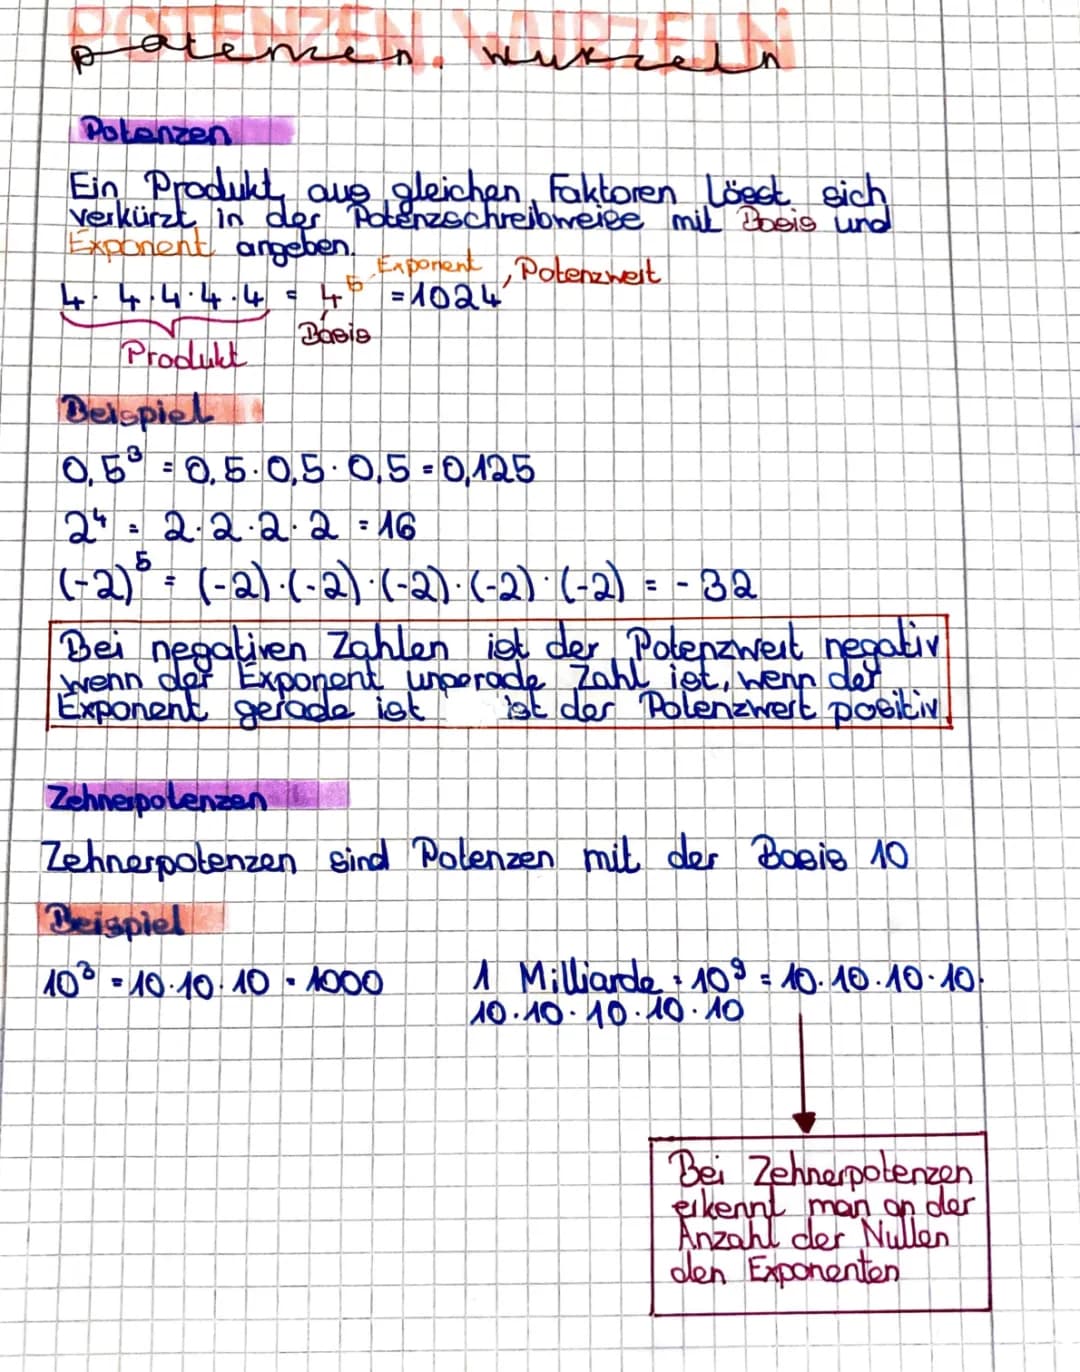 POTENZEN, WURZELN
potenzen, wurzeln
Potenzen
Ein Produkt aus gleichen Faktoren lässt sich
verkürzt in der Potenzschreibweise mit Basis und
Exponent angeben.
Exponent, Potenzwert
4 · 4 · 4 · 4 · 4 = 4⁵ = 1024
Basis
Produkt
Beispiel
0,5³ = 0,5 · 0,5 · 0,5 = 0,125
2⁴ = 2 · 2 · 2 · 2 = 16
(-2)⁵ = (-2) · (-2) · (-2) · (-2) · (-2) = -32
Bei negativen Zahlen ist der Potenzwert negativ
wenn der Exponent ungerade Zahl ist, wenn der
Exponent gerade ist ist der Potenzwert positiv
Zehnerpotenzen
Zehnerpotenzen sind Potenzen mit der Basis 10
Beispiel
10³ = 10 · 10 · 10 = 1000
1 Milliarde = 10⁹ = 10 · 10 · 10 · 10 ·
10 · 10 · 10 · 10 · 10
Bei Zehnerpotenzen
erkennt man an der
Anzahl der Nullen
den Exponenten